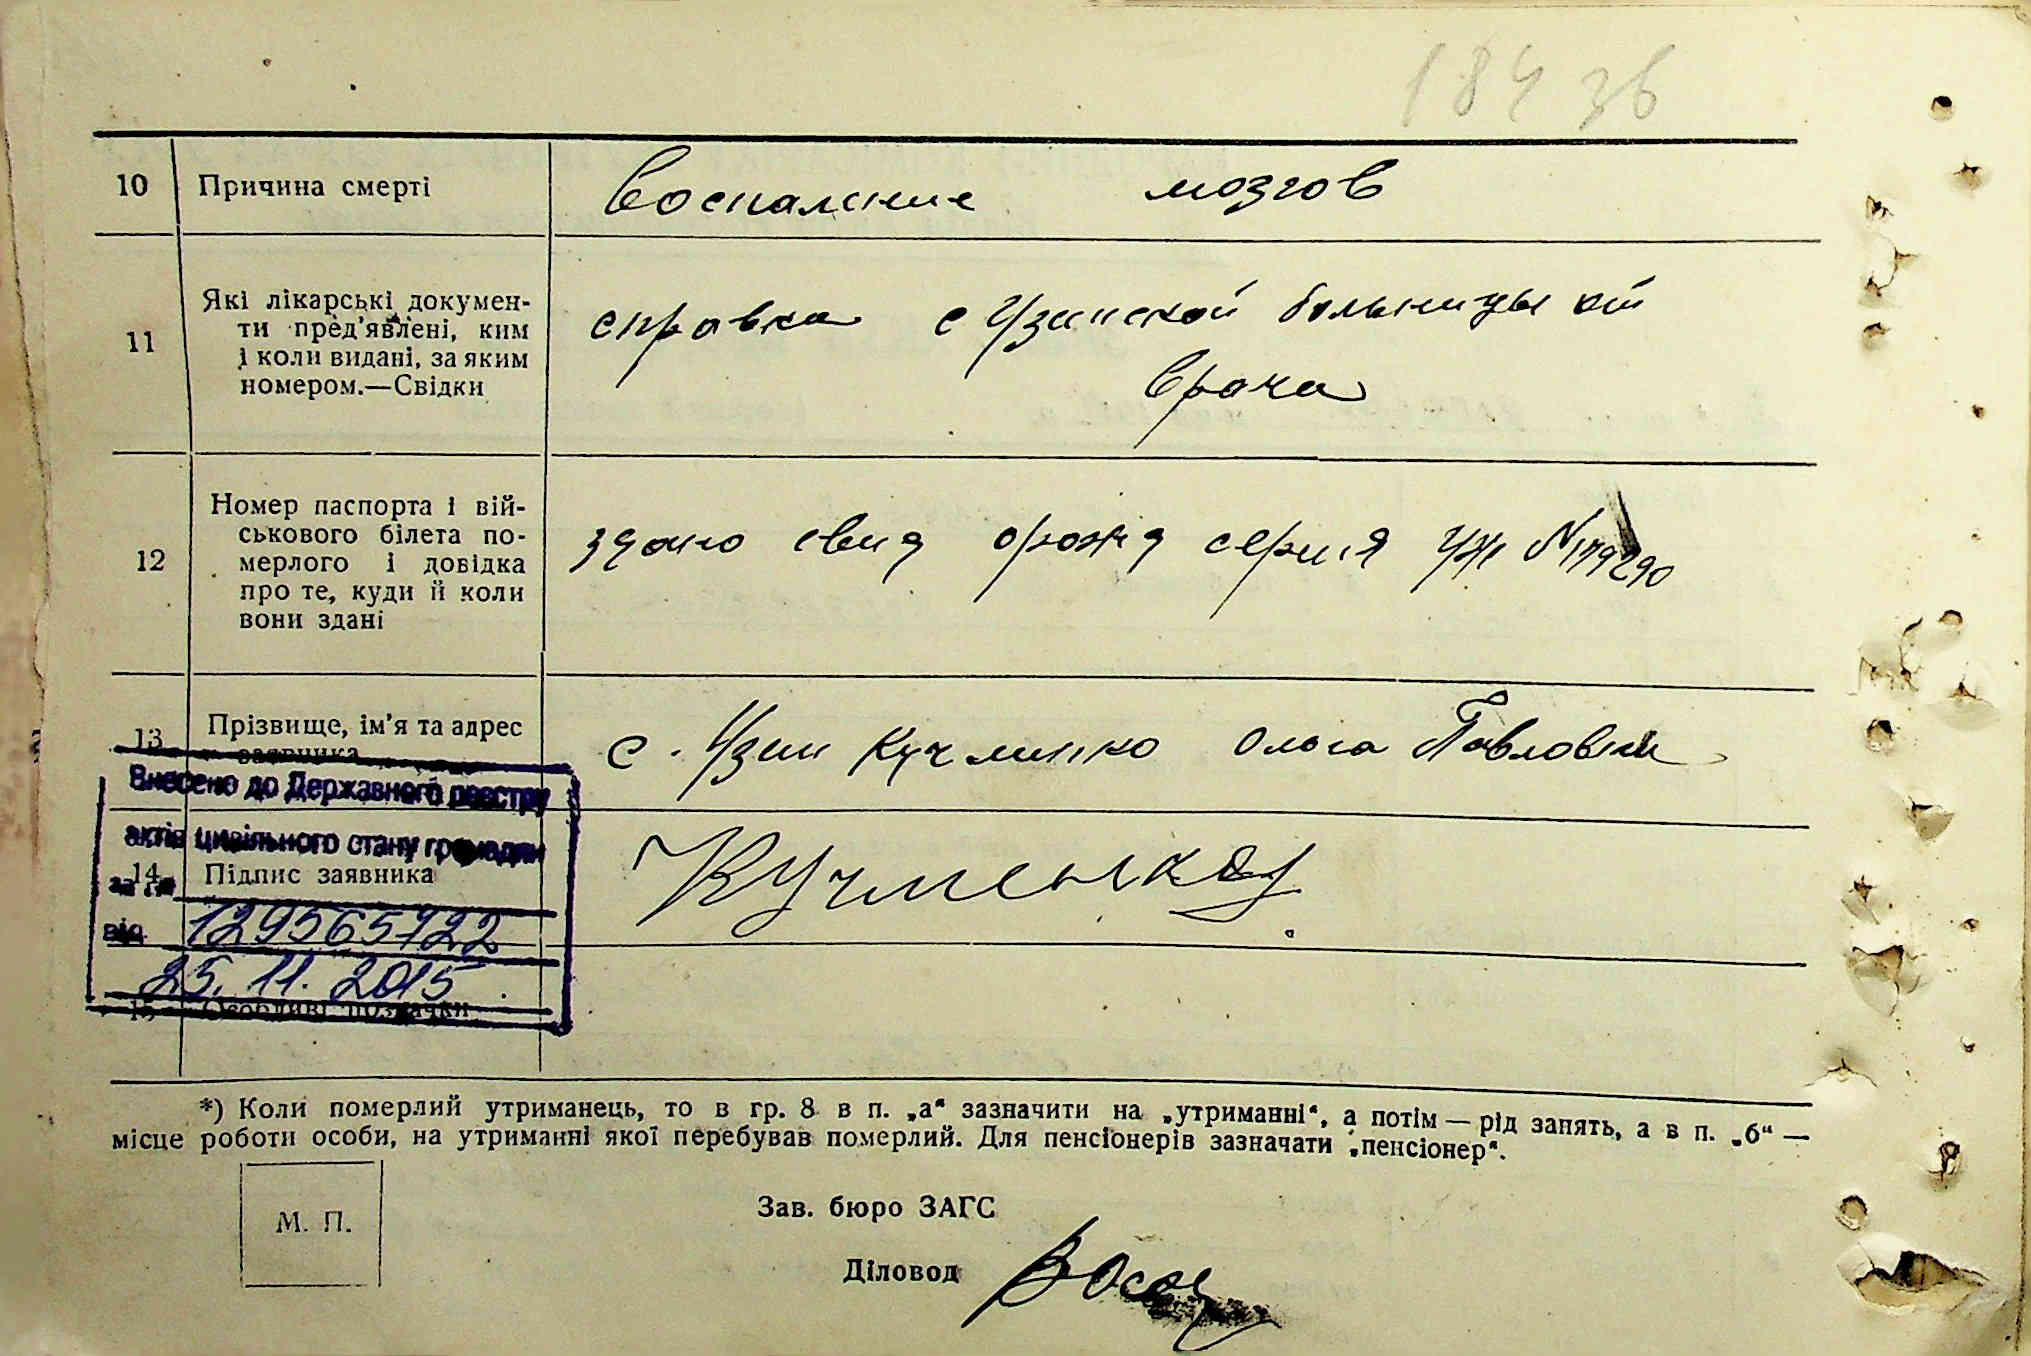 184 зв
10 Причина смерті Воспаление мозгов
Які лікарські докумен-
ти пред'явлені, ким
11 і коли видані, за яким
номером.—Свідки
справка с Узинской больницы от
врача
Номер паспорта і вій-
ськового білета по-
12 мерлого і довідка
про те, куди й коли
вони здані
здано свид о рожд серия УЖ N 179290
13 Прізвище, ім'я та адрес
заявника
с. Узин Кучменко Ольга Павловна
Внесено до Державного реєстру
актів цивільного стану громадян
за №
14 Підпис заявника
Кучменко
129565722
від
25. 11. 2015
15 Особливі позначки
*) Коли померлий утриманець, то в гр. 8 в п. „а“ зазначити на „утриманні“, а потім — рід занять, а в п. „б“ —
місце роботи особи, на утриманні якої перебував померлий. Для пенсіонерів зазначати „пенсіонер“.
М. П.
Зав. бюро ЗАГС
Діловод